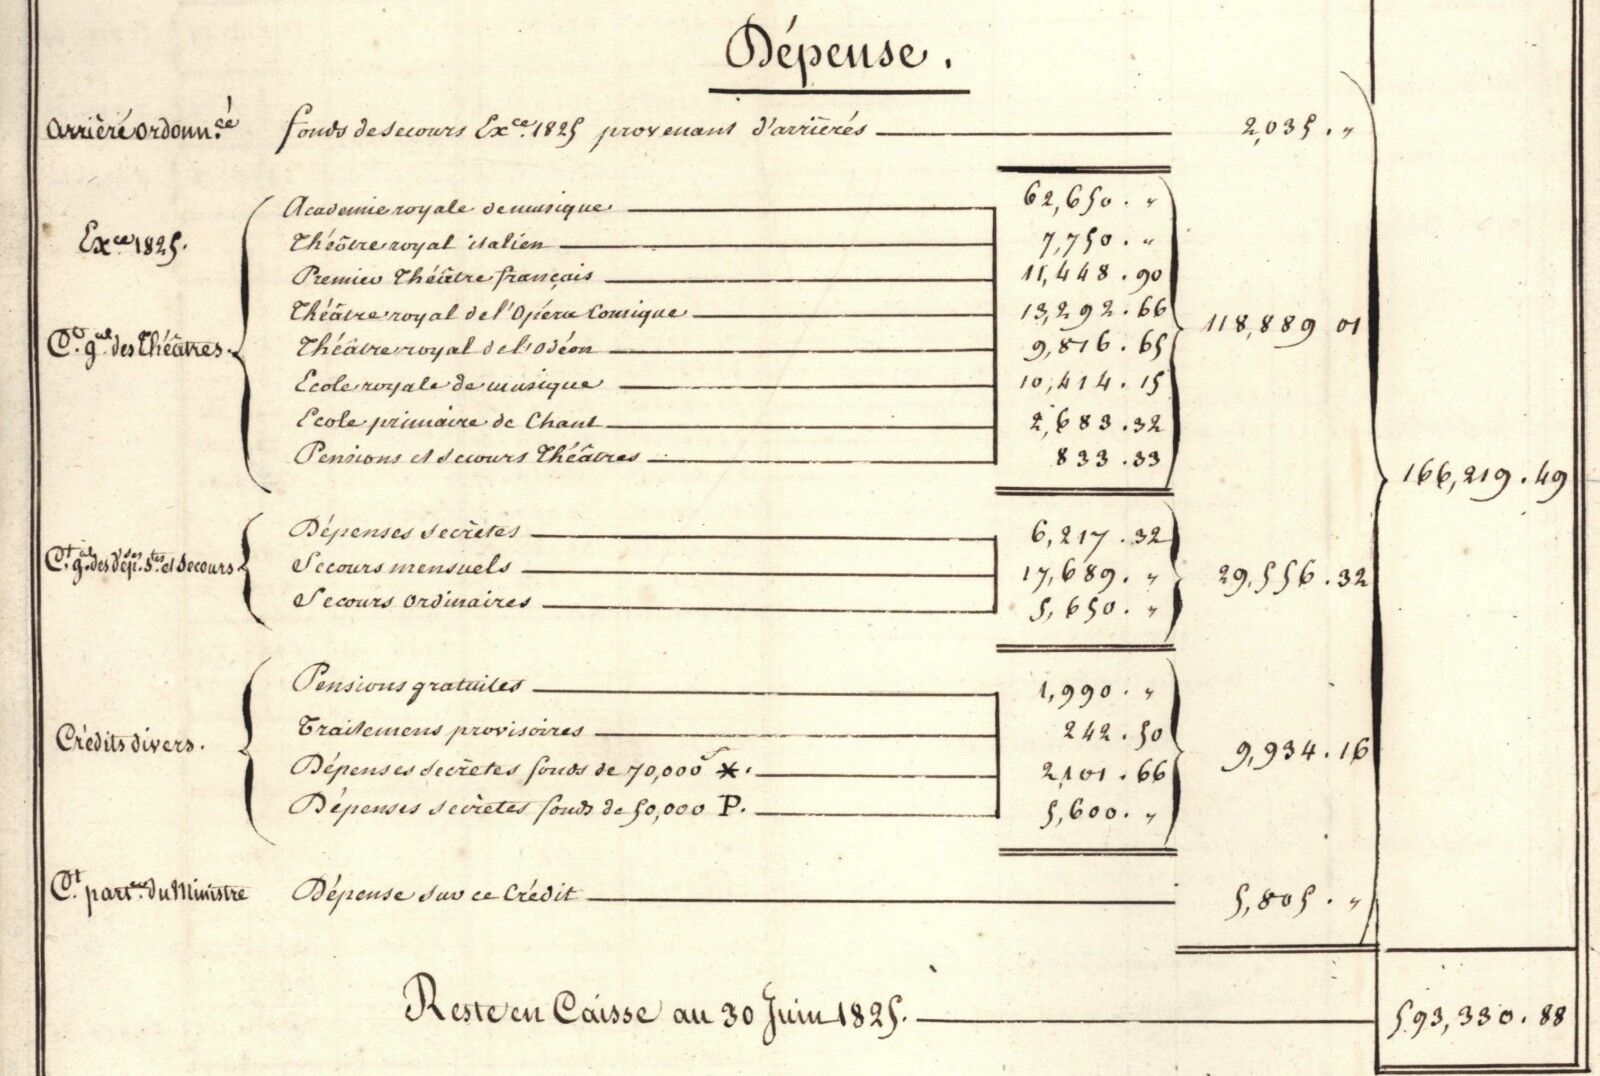 Dépense.
Arriéré ordonn.cé fonds de secours Ex.ce 1825 provenant d'arriérés 2,035 . "
Académie royale de musique 62,650 . "
Ex.ce 1825. Théâtre royal italien 7,750 . "
Premier Théâtre français 11,448 . 90
Théâtre royal de l'Opéra Comique 13,292 . 66 118,889 01
Ct. gal. des Théâtres. Théâtre royal de l'odéon 9,816 . 65
Ecole royale de musique 10,414 . 15
Ecole primaire de Chant 2,683 . 32
Pensions et secours Théâtres 833 . 33
166,219 . 49
Dépenses secrètes 6,217 . 32
Ct. gal. des dép.ses S.tes et Secours Secours mensuels 17,689 . " 29,556 . 32
Secours Ordinaires 5,650 . "
Pensions gratuites 1,990 . "
Crédits divers. Traitemens provisoires 242 . 50 9,934 . 16
Dépenses secrètes fonds de 70,000 f *. 2,101 . 66
Dépenses secrètes fonds de 50,000 P. 5,600 . "
Ct. part.er du Ministre Dépense sur ce Crédit 5,805 . "
Reste en Caisse au 30 Juin 1825. 593,330 . 88